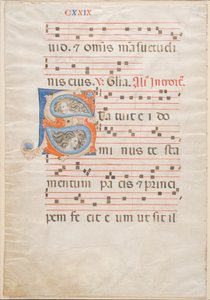 CXXIX
uid. et omnis mansuetudi
nis eius. V. Glia. Ali Introit.
Sta tuit e i do
mi nus te sta
mentum pa cis et princi
pem fe cit e um ut sit il